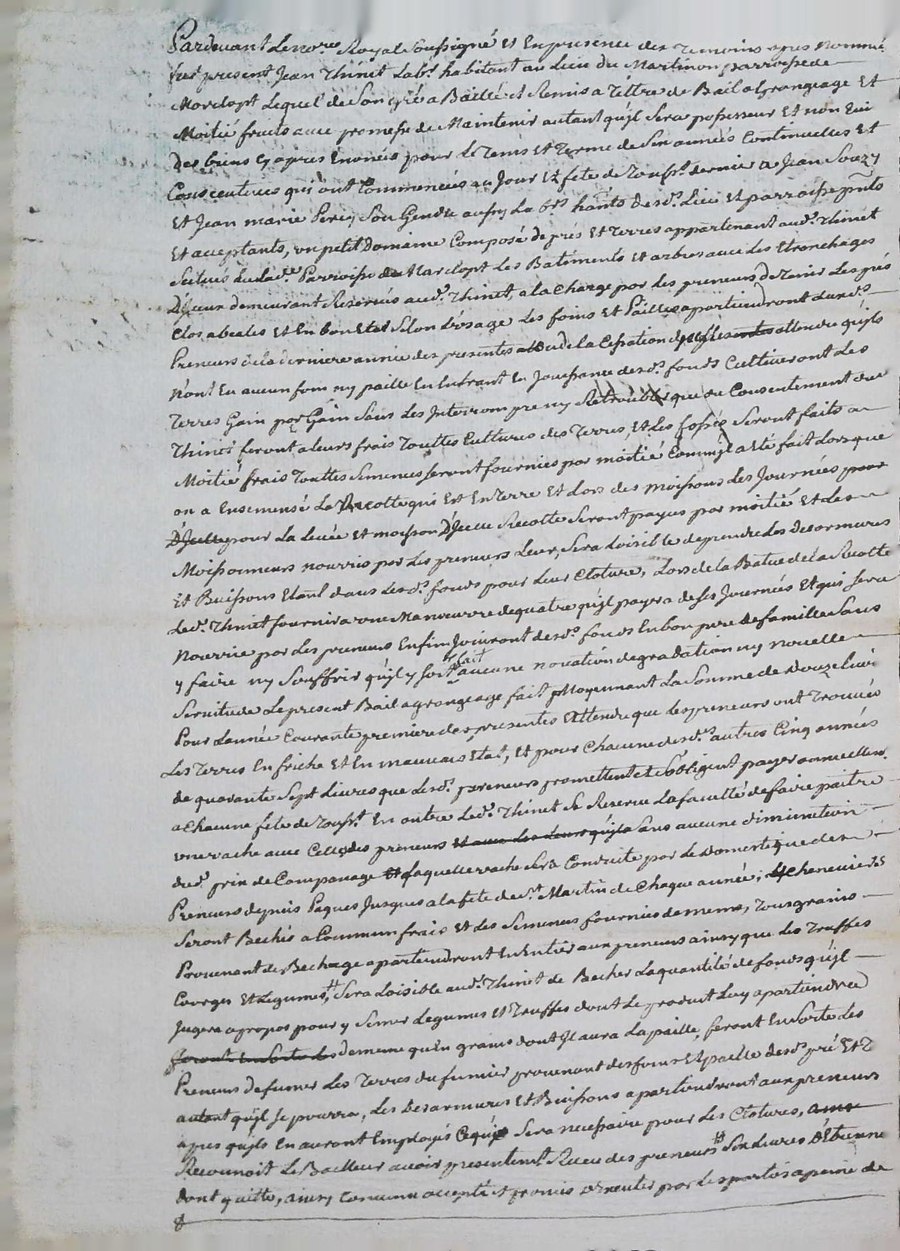 Pardevant Le no.re Royal Soussigné et En presence des temoins apres nommé
fut present Jean Thinet Lab.r habitant au Lieu du Martinon parroisse de
Marclopt Lequel de Son gré a Baillé et Remis a Tittre de Bail a grangeage Et
Moitié fruits avec promesse de Maintenir autant quil Sera possesseur Et non
Des biens Cy apres Enoncés pour Le Tems Et Terme de Six années Continuelles Et
Consecutives qui ont Commencées au Jour Et fete de Touss.ts dernier a Jean Souzy
Et Jean marie Son Gendre aussy La b.rs hants dud. Lieu et parroisse pnts
Et acceptants, un petit domaine Composé de prés Et Terres appartenant aud. Thinet
Scitués Parroisse Marclopt Les Batiments Et arbres avec Les Etronchages
D'iceux demeurant Reservés aud. Thinet, a la Charge par Les preneurs de Tenir Les prés
Clos et En bon Etat Selon L'usage Les foins Et Pailles apartiendront auxd.
Preneurs a la derniere année des presentes attendre quils
n'ont En aucun foin ny paille En Entrant En Jouissance desd. fonds Cultiveront Les
Terres Gain par Gain Sans Les Interrompre ny que du Consentement dud.
Thinet feront a leurs frais Touttes Cultures des Terres, Et Les fossés Seront faits a
Moitié frais Touttes Semences Seront fournies par moitié Comme il a Eté fait Lorsque
on a Ensemensé La Recolte qui Est En Terre Et Lors des moissons des Journées pour
D'Jcelle pour La Levée Et moisson D'Jcelle Recolte Seront payés par moitié Et Les
Moissonneurs nourris par Les preneurs Leur Sera Loisible de prendre Les desarmures
Et Buissons Etant dans Lesd. fonds pour Leur Cloture, Lors de la Batue de la Recolte
Led. Thinet fournira une Manoeuvre de quatre quil payera de Ses Journées Et qui Sera
Nourrie par Les preneurs Enfin Jouiront desd. fonds En bon pere de famille Sans
y faire ny Souffrir quil y Soit fait aucune novation degradation ny nouvelle
Servitude Le present Bail a grangeage fait Moyennant La Somme de Douze Livres
Pour L'année Courante premiere des presentes Attendre que Les preneurs ont Trouvés
Les Terres En friche Et En mauvais Etat, Et pour Chacune desd. autres Cinq années
de quarante Sept Livres que Lesd. preneurs promettent et S'obligent payer annuellement
a Chacune fete de Touss.ts En outre Led. Thinet Se Reserve La faculté de faire paitre
une vache avec Celles des preneurs Sans aucune diminution
dud. prix de Laquelle vache Sera Conduite par Le Domestique des
Preneurs depuis Paques Jusques a la fete de S.t Martin de Chaque année; Les Chenevieres
Seront Bechés a Commun frais Et des Semences fournies de meme, Tous grains
Provenant de Bechage apartiendront En Entier aux preneurs ainsy que Les Truffes
Courges Et Legumes, Sera Loisible aud. Thinet de Becher La quantité de fonds quil
Jugera apropos pour y Semer Legumes Et Truffes dont Le produit Luy apartiendra
de meme qu'En grains dont Jl aura La paille, feront En Sorte Les
Preneurs de fumer Les Terres du fumier provenant des foins Et paille desd. prés Et T
autant quil Se pourra, Les Desarmures Et Buissons apartiendront aux preneurs
apres quils En auront Employés Ce qui Sera necessaire pour Les Clotures,
Reconnoit Le Bailleur avoir presentement Receu des preneurs Six Livres D'Etrenne
dont quitte, ainsy Convenu accepté et promis Executer par Les parties a peine de